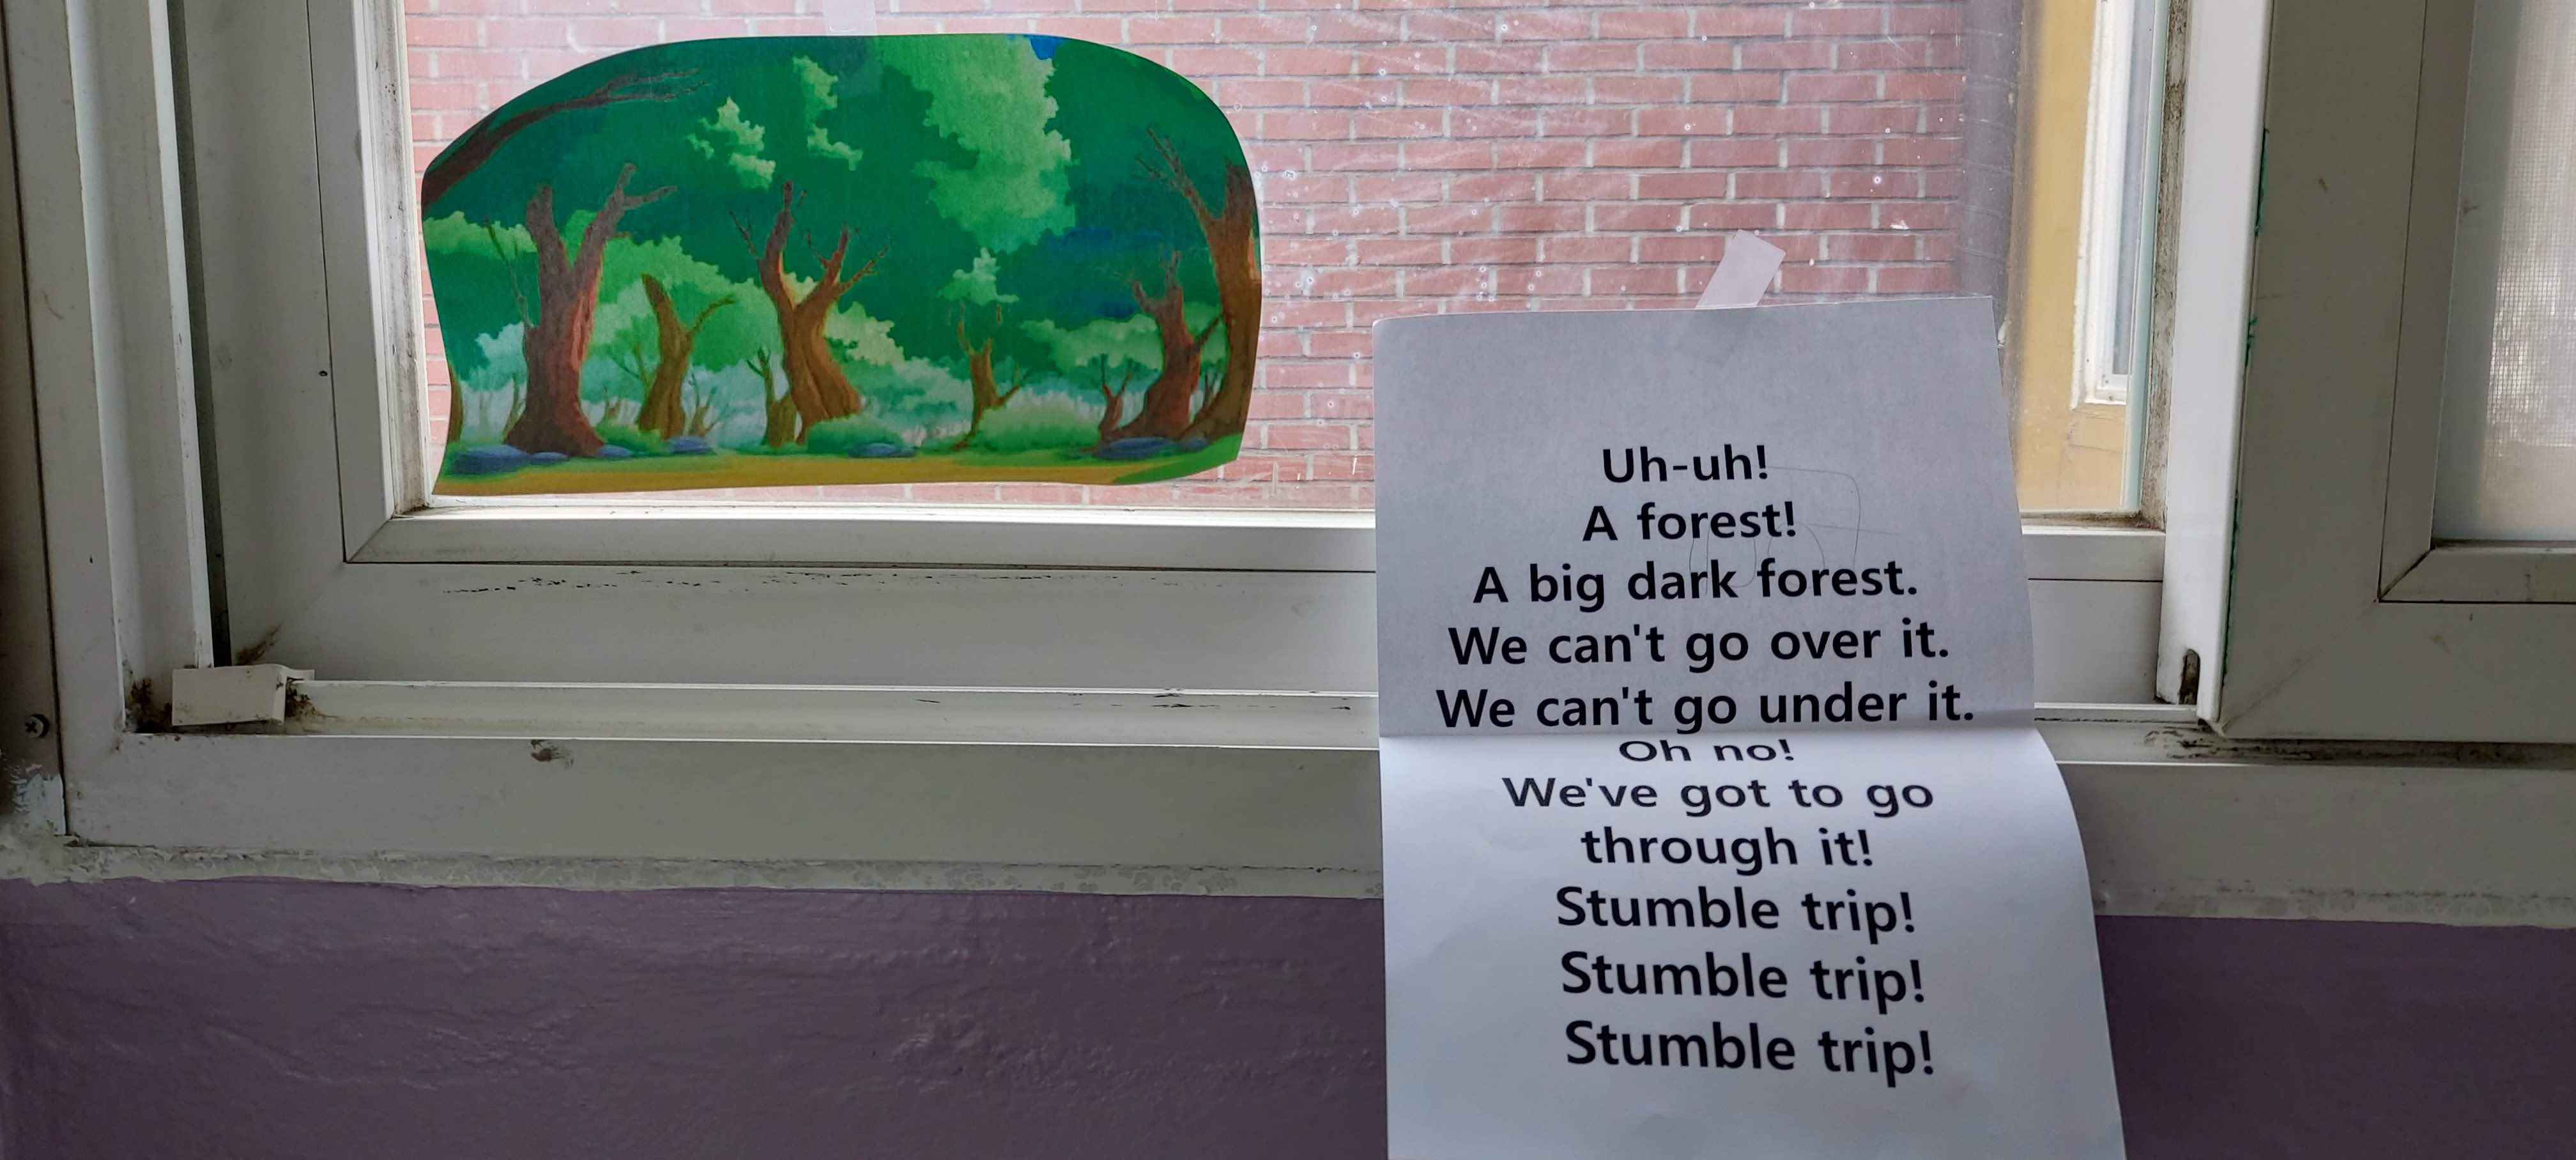 Uh-uh!
A forest!
A big dark forest.
We can't go over it.
We can't go under it.
Oh no!
We've got to go
through it!
Stumble trip!
Stumble trip!
Stumble trip!